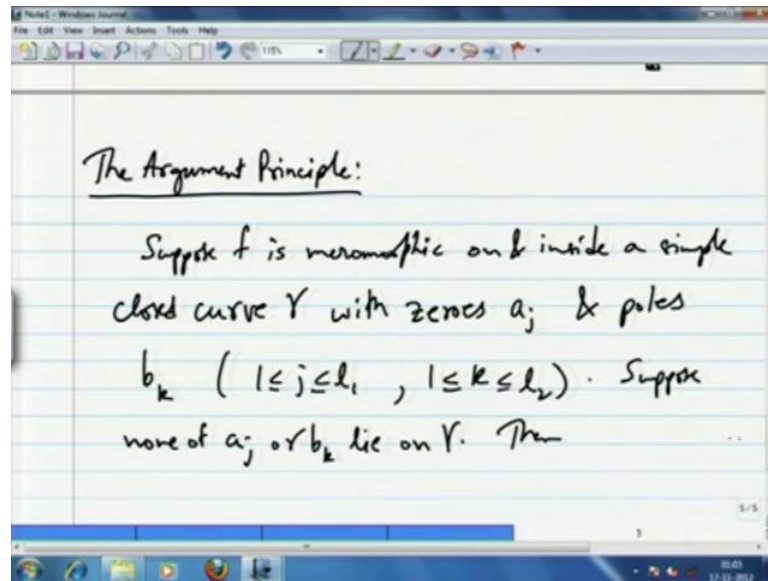 Note1 - Windows Journal
File Edit View Insert Actions Tools Help
115%
The Argument Principle:
Suppose f is meromorphic on & inside a simple
closed curve γ with zeroes a_j & poles
b_k ( 1 ≤ j ≤ l_1 , 1 ≤ k ≤ l_2 ) . Suppose
none of a_j or b_k lie on γ. Then
5/5
5
01:03
17-11-2012